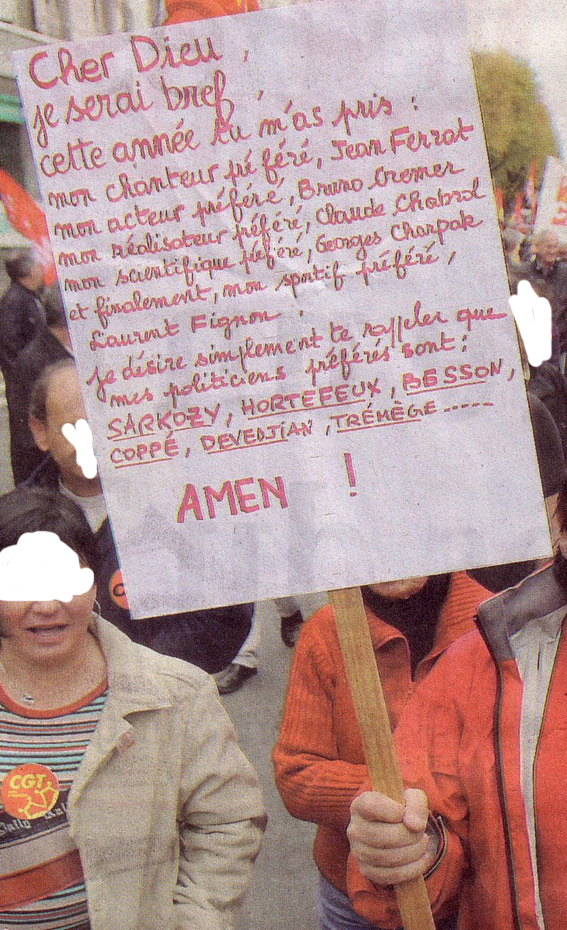 Cher Dieu,
je serai bref,
cette année tu m'as pris :
mon chanteur préféré, Jean Ferrat
mon acteur préféré, Bruno Cremer
mon réalisateur préféré, Claude Chabrol
mon scientifique préféré, Georges Charpak
et finalement, mon sportif préféré,
Laurent Fignon.
Je désire simplement te rappeler que
mes politiciens préférés sont :
SARKOZY, HORTEFEUX, BESSON,
COPPÉ, DEVEDJIAN, TRÉMÈGE .....
AMEN !
CGT